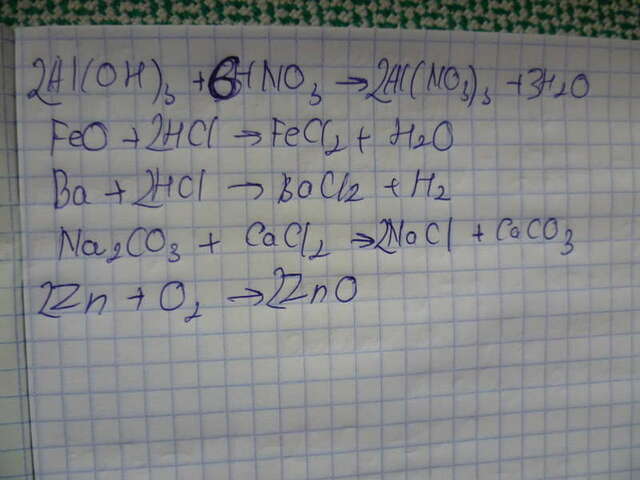 2Al(OH)₃ + 6HNO₃ → 2Al(NO₃)₃ + 3H₂O
FeO + 2HCl → FeCl₂ + H₂O
Ba + 2HCl → BaCl₂ + H₂
Na₂CO₃ + CaCl₂ → 2NaCl + CaCO₃
2Zn + O₂ → 2ZnO